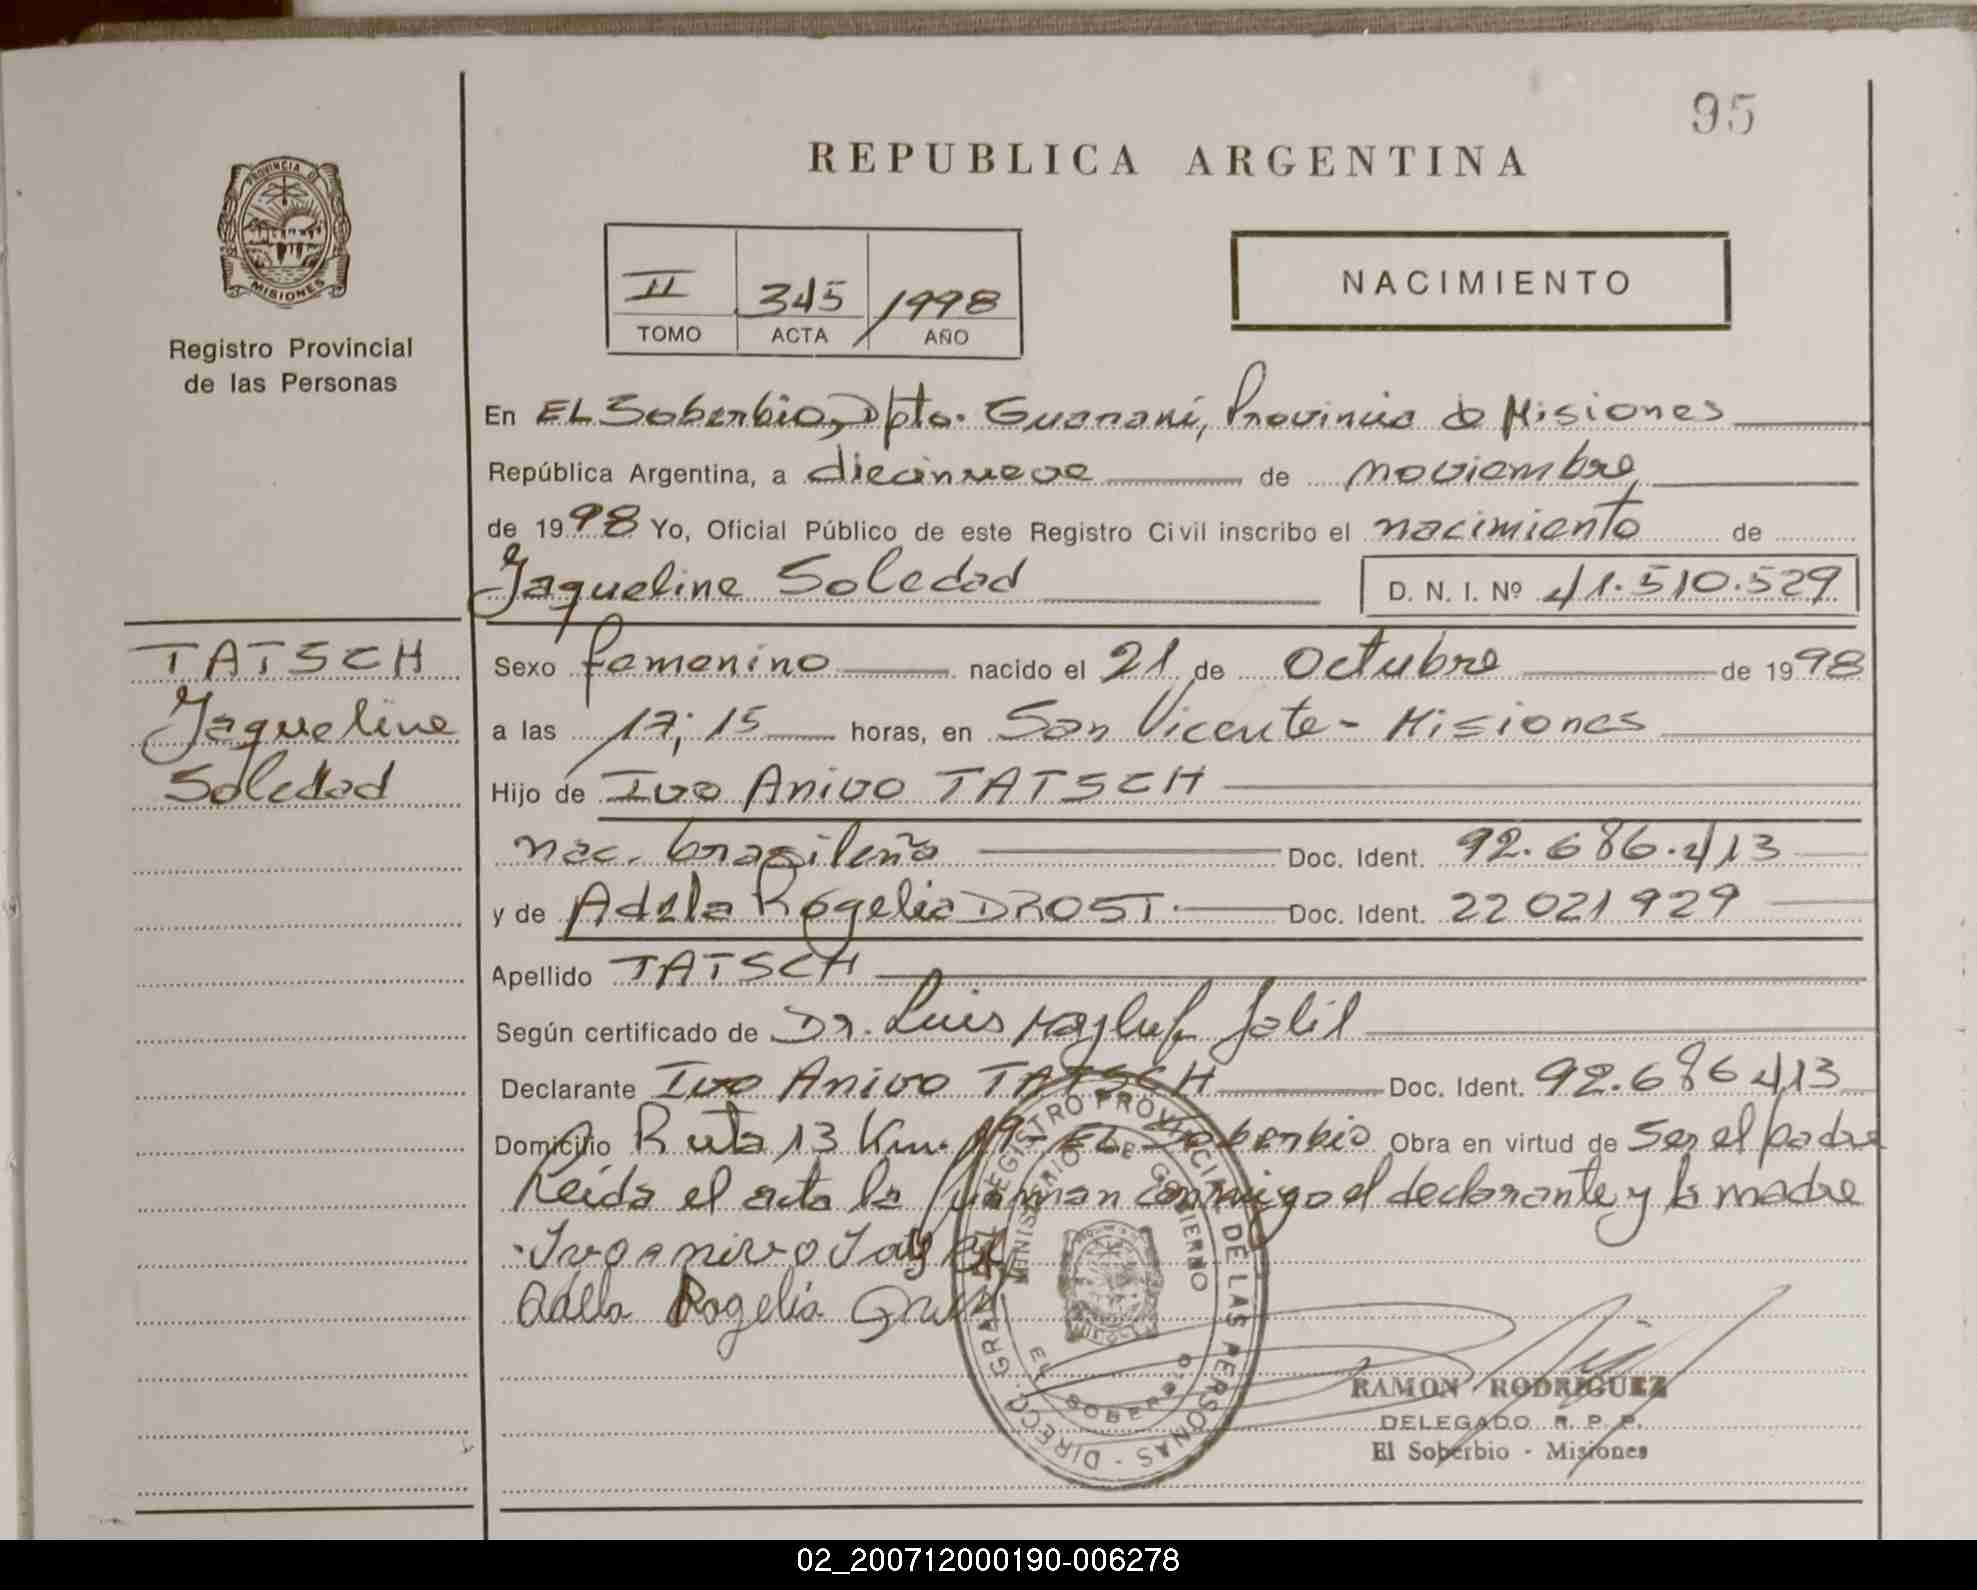 95
REPUBLICA ARGENTINA
PROVINCIA DE
MISIONES
Registro Provincial
de las Personas
II 345 1998
TOMO ACTA AÑO
NACIMIENTO
En EL Soberbio, Dpto. Guaraní, Provincia de Misiones
República Argentina, a diecinueve de noviembre
de 1998 Yo, Oficial Público de este Registro Civil inscribo el nacimiento de
Jaqueline Soledad D. N. I. Nº 41.510.529
TATSCH
Jaqueline
Soledad
Sexo femenino nacido el 21 de Octubre de 1998
a las 17:15 horas, en San Vicente - Misiones
Hijo de Ivo Anivo TATSCH
nac. brasileña Doc. Ident. 92.686.413
y de Adela Rogelia DROST. Doc. Ident. 22 021 929
Apellido TATSCH
Según certificado de Dr. Luis Mayluf Jalil
Declarante Ivo Anivo TATSCH Doc. Ident. 92.686 413
Domicilio Ruta 13 Km. 19 - EL Soberbio Obra en virtud de Ser el padre
Leída el acta la firman conmigo el declarante y la madre
Ivo anivo
Adela Rogelia
DIRECC. GRAL. DEL REGISTRO PROVINCIAL DE LAS PERSONAS -
MINISTERIO DE GOBIERNO
EL SOBERBIO
RAMON RODRIGUEZ
DELEGADO R. P. P.
El Soberbio - Misiones
02_200712000190-006278